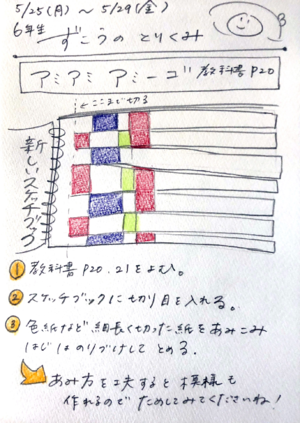 5/25(月) ～ 5/29(金)
6年生 ずこうの とりくみ
アミアミ アミーゴ 教科書 P20
← ここまで切る
新しいスケッチブック
① 教科書 P20. 21をよむ。
② スケッチブックに切り目を入れる。
③ 色紙など 細長く切った紙をあみこみ
はじはのりづけしてとめる.
あみ方を工夫すると 模様も
作れるので ためしてみてくださいね!